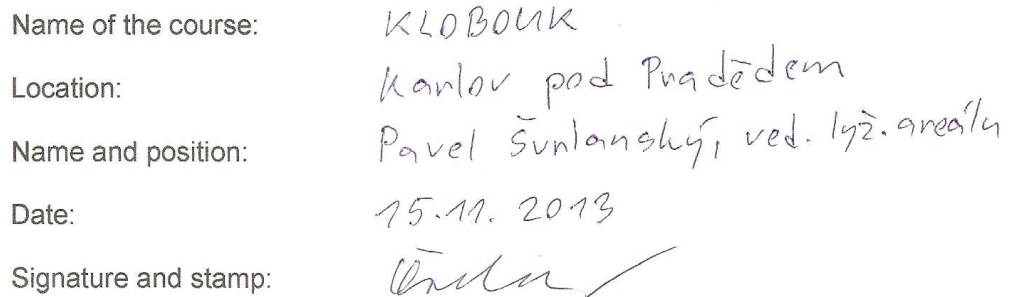 Name of the course: KLOBOUK
Location: Karlov pod Pradědem
Name and position: Pavel Šurlanský, ved. lyž. areálu
Date: 15.11. 2013
Signature and stamp: